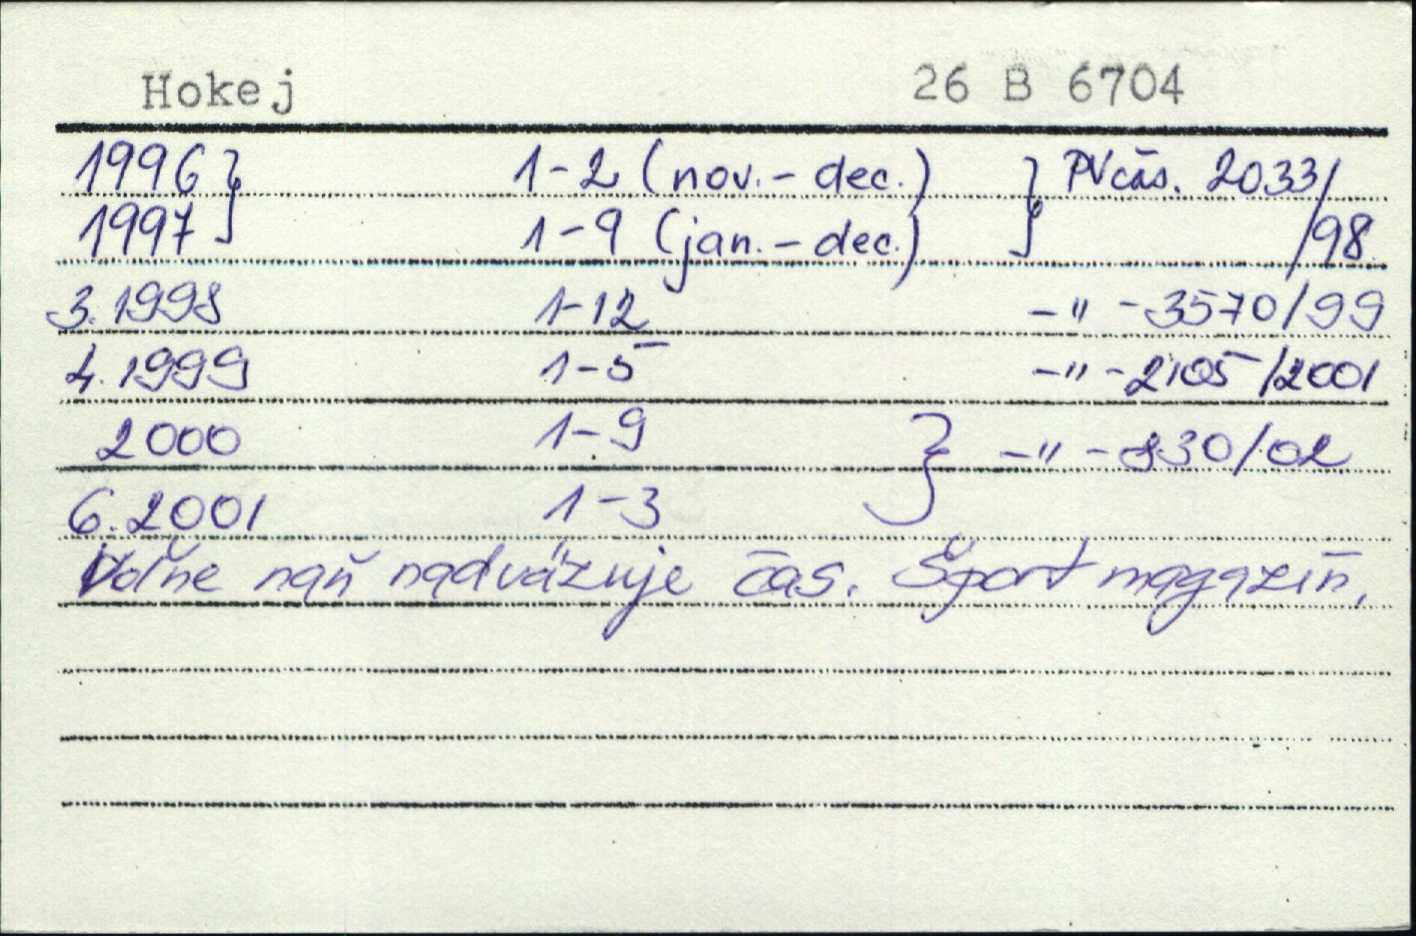 Hokej 26 B 6704
1996 } 1-2 (nov.- dec.) } PV čas. 2033/
1997 1-9 (jan.- dec.) /98
3. 1998 1-12 -"- 3570/99
4. 1999 1-5 -"- 2105/2001
2000 1-9 } -"- 830/02
6. 2001 1-3
Voľne naň nadväzuje čas. Šport magazín.